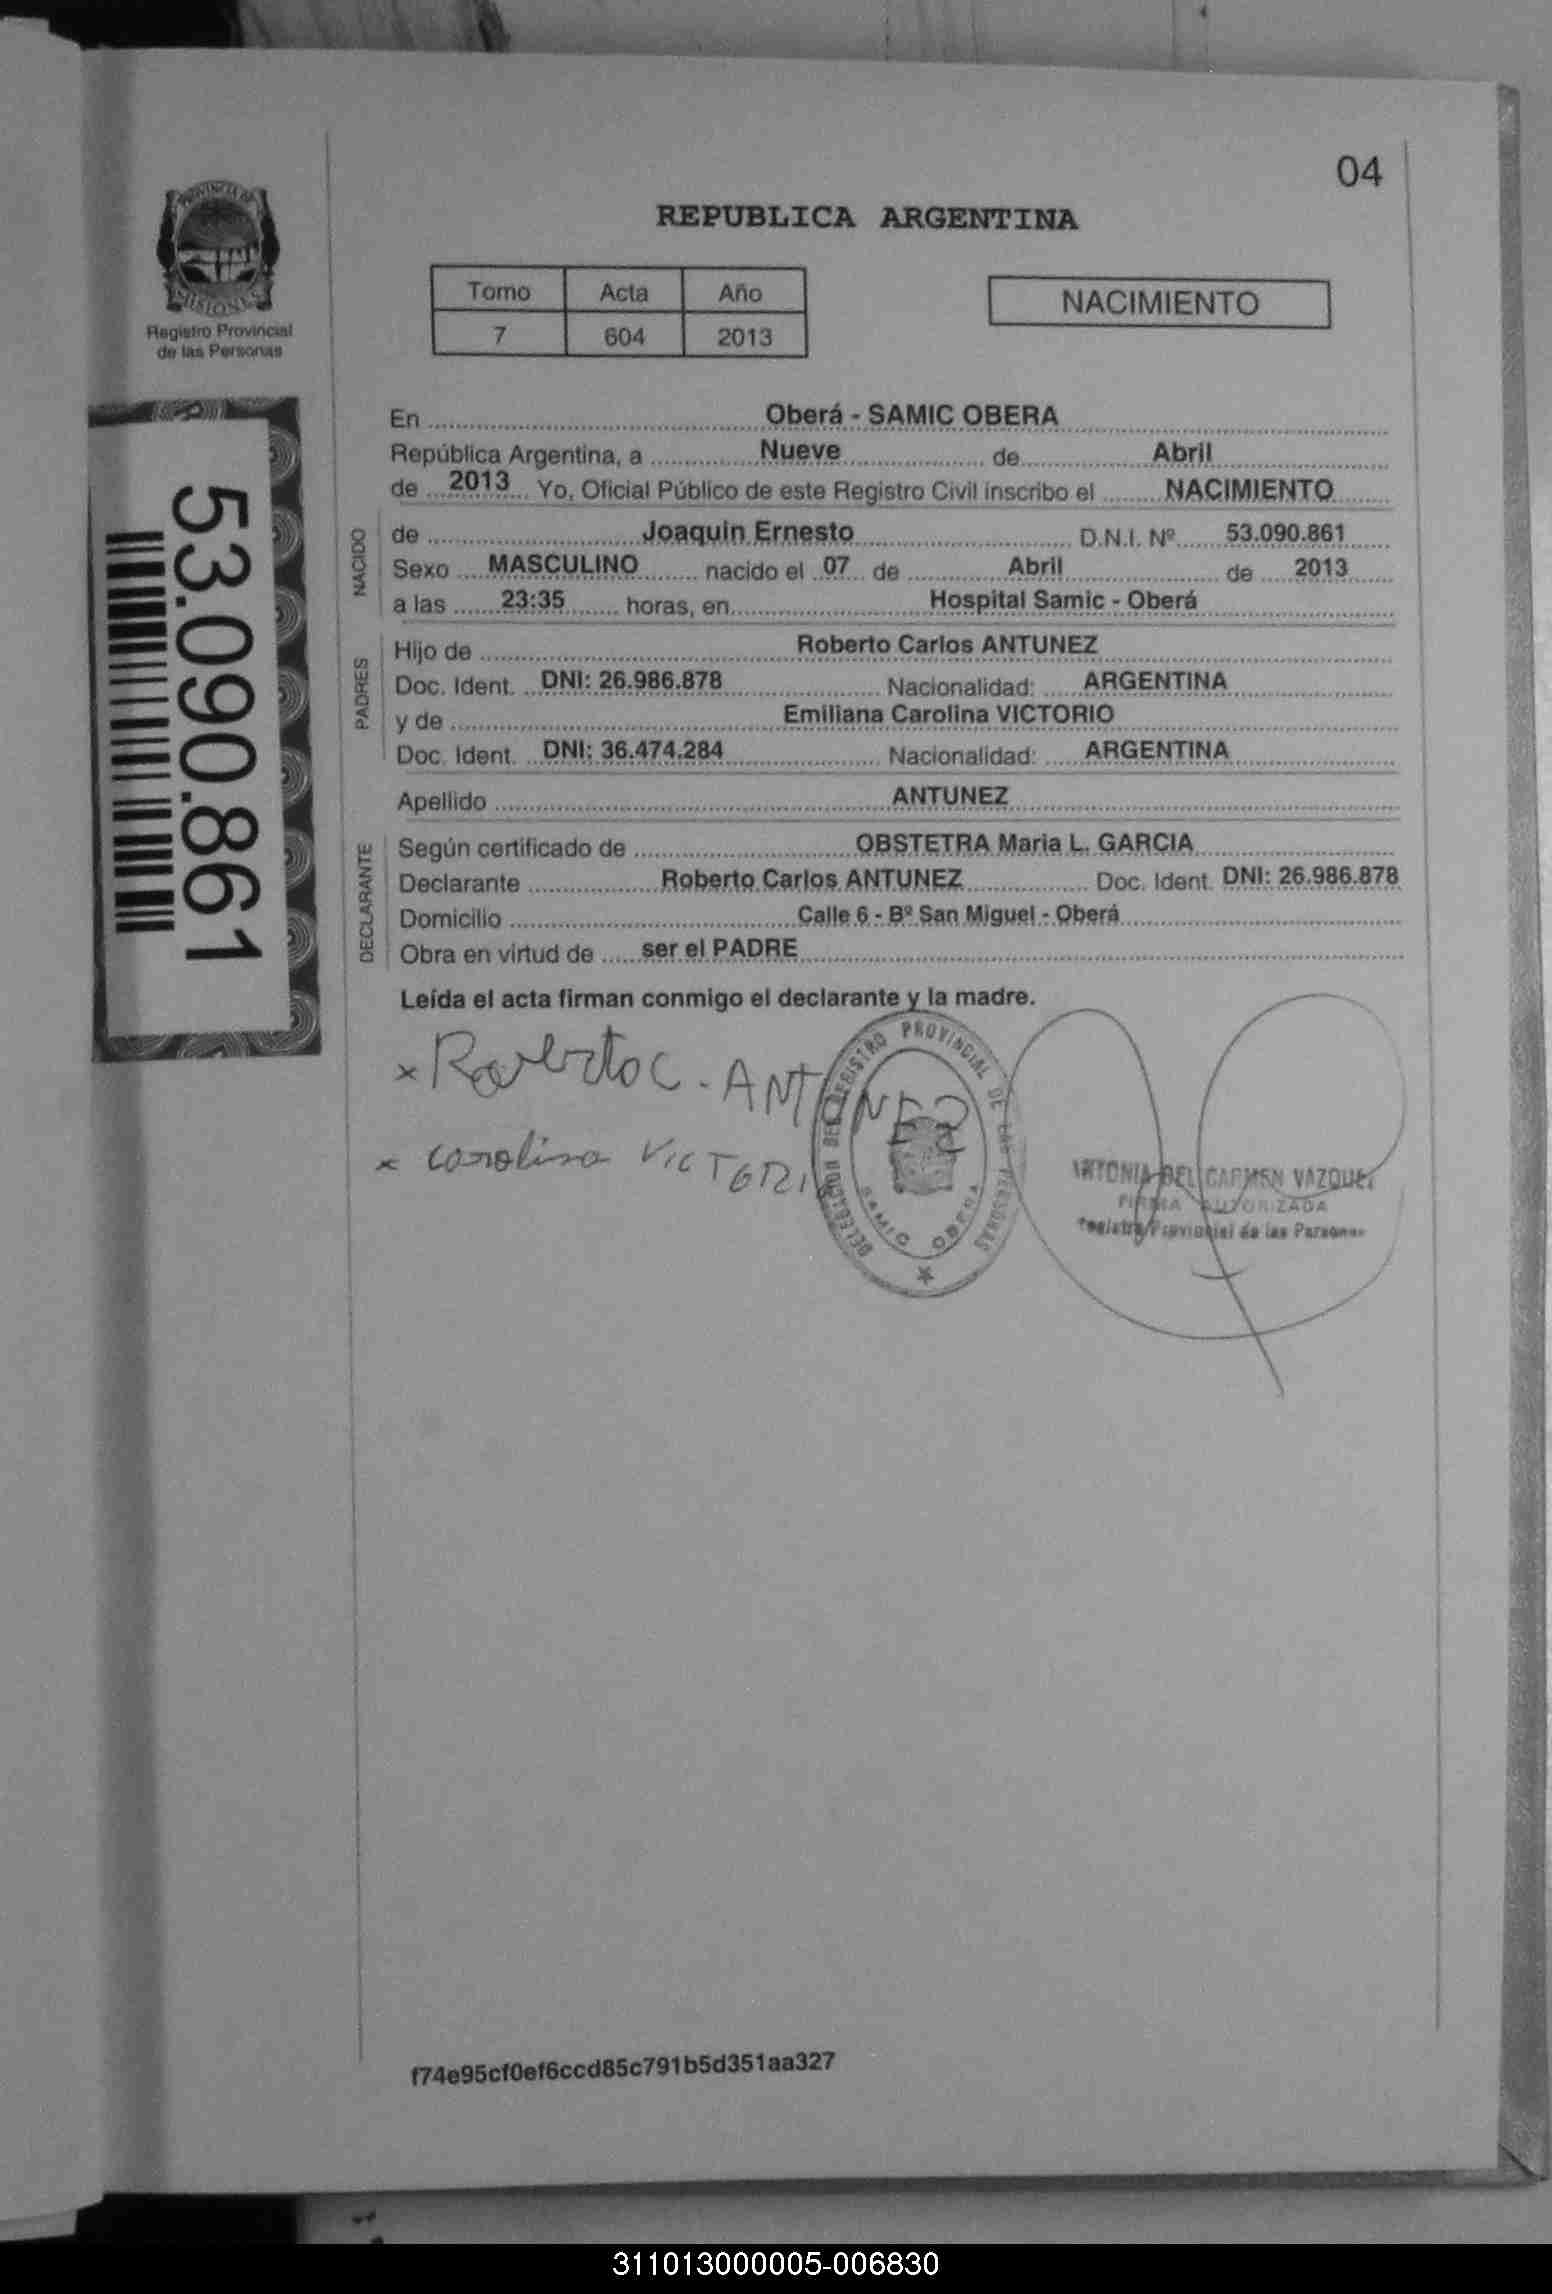 04
PROVINCIA DE
MISIONES
Registro Provincial
de las Personas
REPUBLICA ARGENTINA
Tomo Acta Año
7 604 2013
NACIMIENTO
53.090.861
En Oberá - SAMIC OBERA
República Argentina, a Nueve de Abril
de 2013 Yo, Oficial Público de este Registro Civil inscribo el NACIMIENTO
NACIDO
de Joaquin Ernesto D.N.I. Nº 53.090.861
Sexo MASCULINO nacido el 07 de Abril de 2013
a las 23:35 horas, en Hospital Samic - Oberá
PADRES
Hijo de Roberto Carlos ANTUNEZ
Doc. Ident. DNI: 26.986.878 Nacionalidad: ARGENTINA
y de Emiliana Carolina VICTORIO
Doc. Ident. DNI: 36.474.284 Nacionalidad: ARGENTINA
Apellido ANTUNEZ
DECLARANTE
Según certificado de OBSTETRA Maria L. GARCIA
Declarante Roberto Carlos ANTUNEZ Doc. Ident. DNI: 26.986.878
Domicilio Calle 6 - Bº San Miguel - Oberá
Obra en virtud de ser el PADRE
Leída el acta firman conmigo el declarante y la madre.
x Roberto C. ANTUNEZ
x Carolina VICTORI
DELEGACION DEL REGISTRO PROVINCIAL DE LAS PERSONAS
SAMIC OBERA
ANTONIA DEL CARMEN VAZQUEZ
FIRMA AUTORIZADA
Registro Provincial de las Personas
f74e95cf0ef6ccd85c791b5d351aa327
311013000005-006830